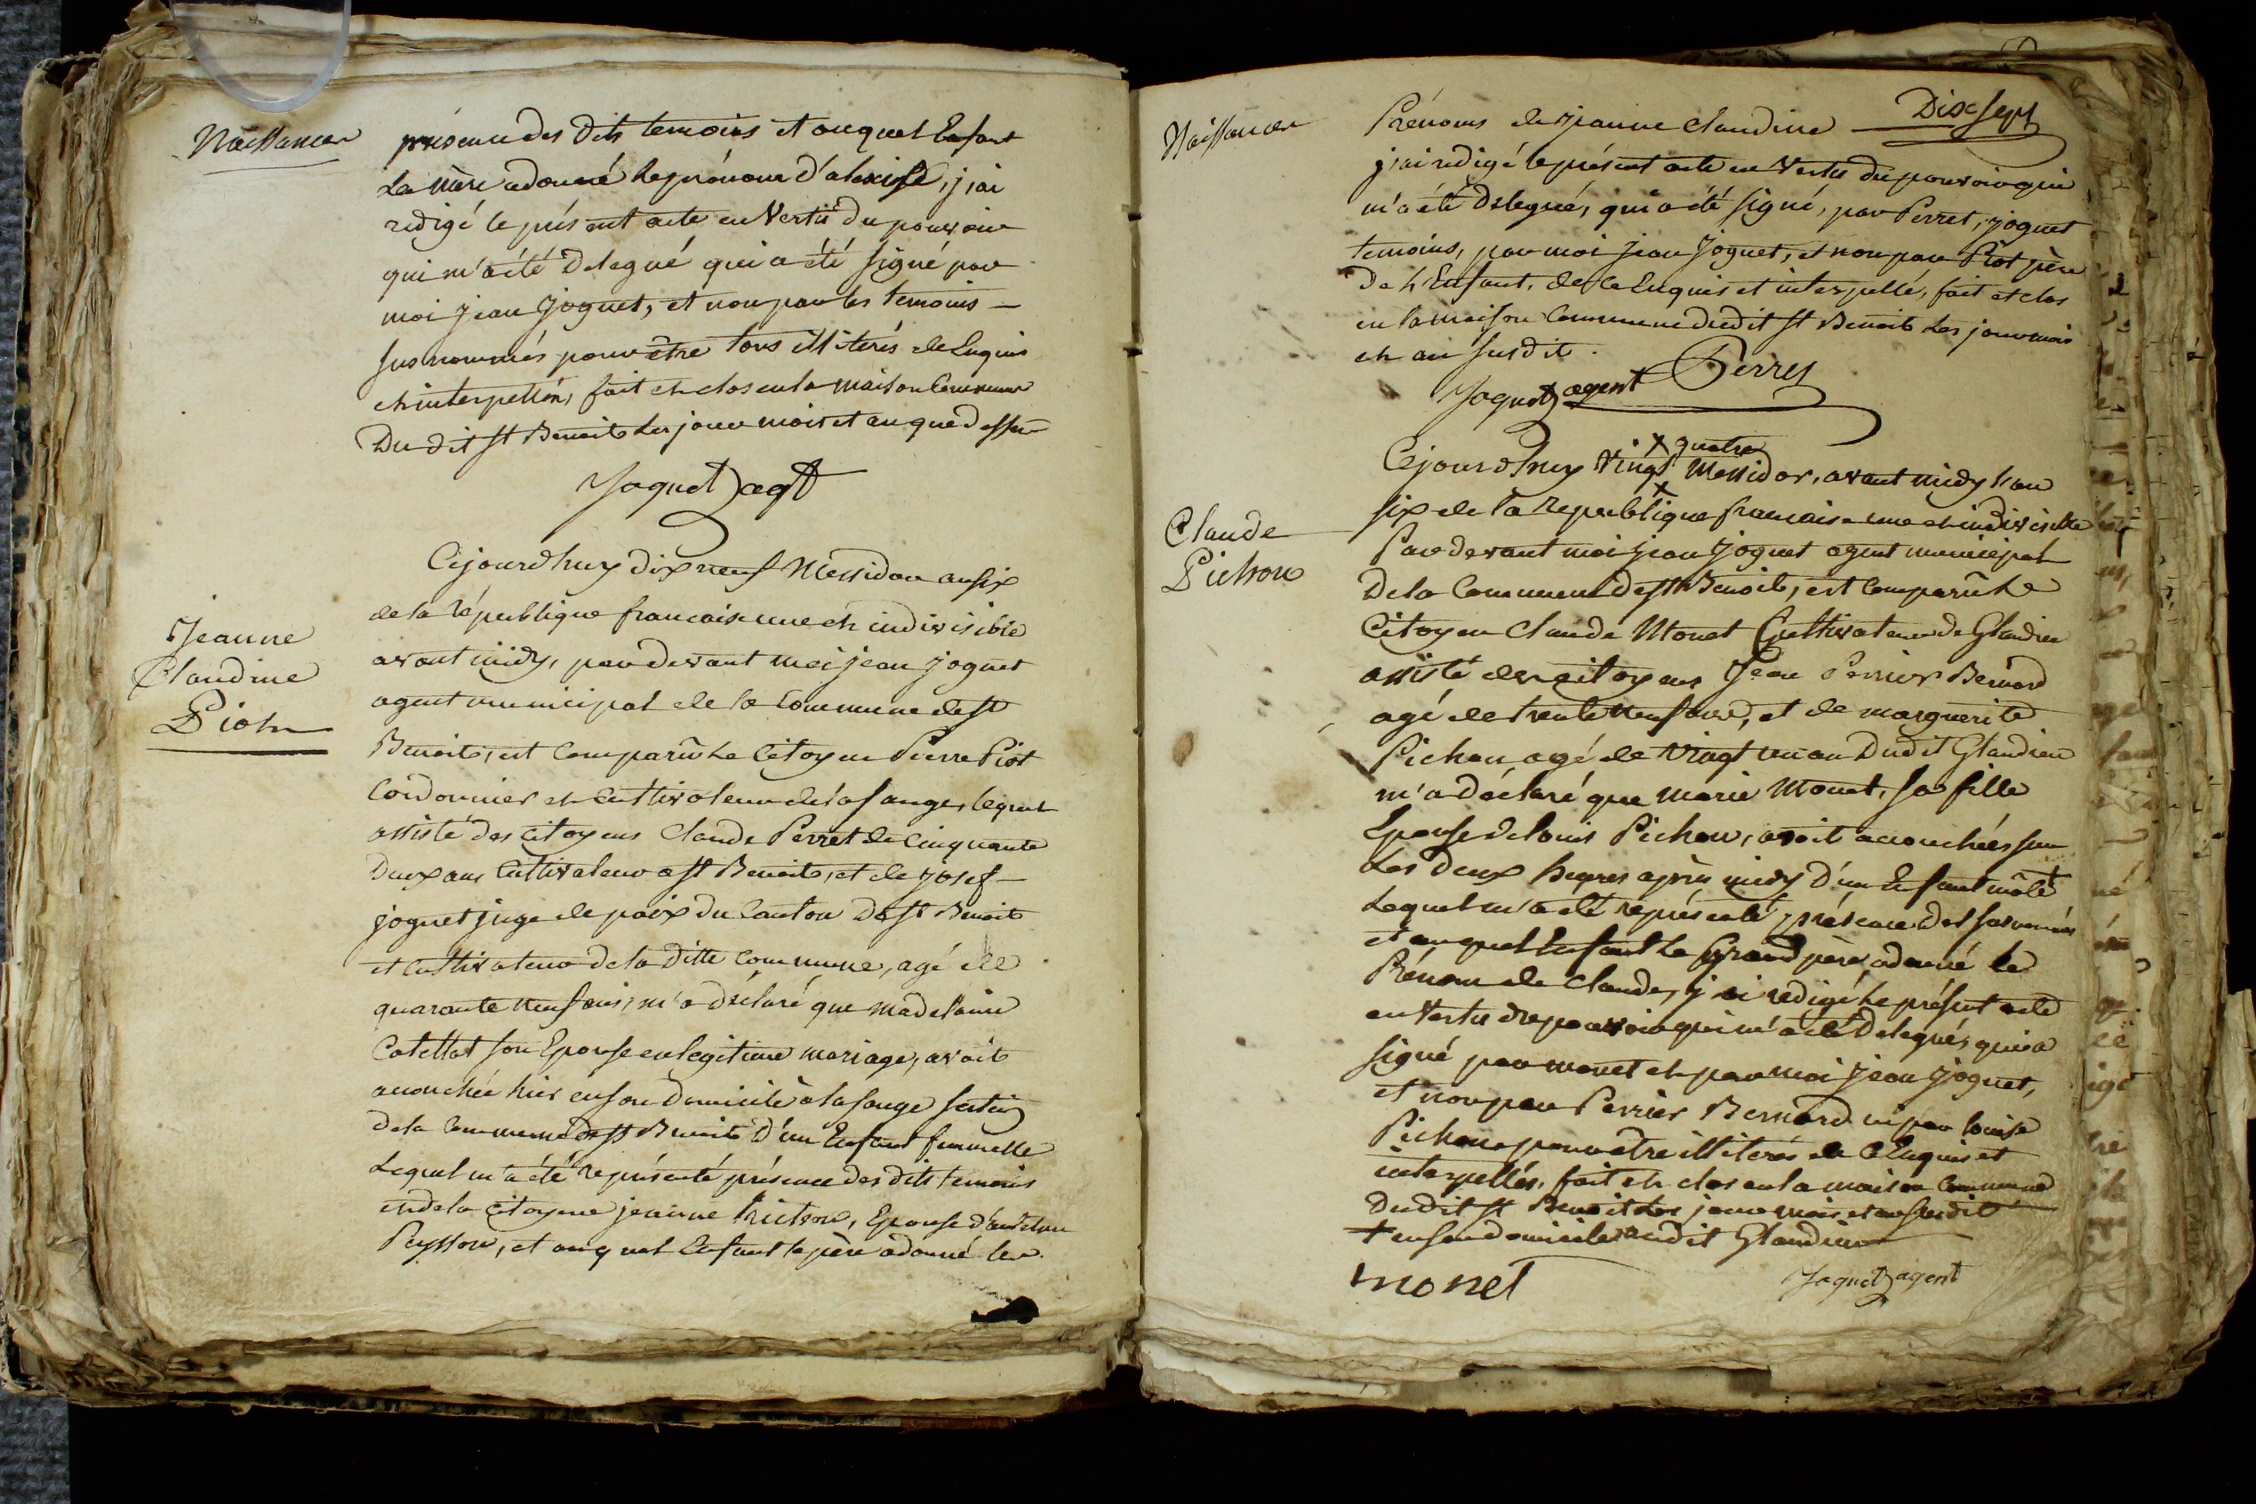 Naissances
présence des dits temoins et auquel Enfant
La mère a donné le prénom d'alexise, j'ai
redigé le présent acte en Vertu du pouvoir
qui m'a été Delegué qui a été signé par
moi jean joguet, et non par les temoins
susnommés pour être tous illiterés de Enquis
et interpellés, fait et clos en la maison Commune
Du dit St Benoit Les jour mois et an que dessus
Joguet agt
Jeanne
Claudine
Piot
Cejourdhuy dix neuf Messidor an six
de la république francaise une et indivisible
avant midy, par devant moi jean joguet
agent municipal de la Commune de St
Benoit, est Comparu Le Citoyen Pierre Piot
Cordonnier et Cultivateur de la fange, lequel
assisté des citoyens Claude Perret de Cinquante
Deux ans Cultivateur a St Benoit, et de josef
joguet juge de paix du Canton De St Benoit
et Cultivateur de la ditte Commune, agé de
quarante neuf ans, m'a déclaré que madelaine
Catellat son Epouse en legitime mariage, avoit
accouchée hier en son Domicile à la fange section
de la Commune de St Benoit D'un Enfant femmelle
Lequel m'a été représenté présence des dits temoins
et de la Citoyene jeanne Trichon, Epouse d'anthelme
Peysson, et auquel Enfant le père a donné les
Naissances
Dix Sept
Prénoms de jeanne claudine
j'ai redigé le présent acte en Vertu du pouvoir qui
m'a été Delegué, qui a été signé, par Perret, joguet
temoins, par moi jean joguet, et non par Piot père
De L'Enfant, de ce Enquis et interpellé, fait et clos
en la maison Commune dudit St Benoit Les jour mois
et an susdit.
Joguet agent Perret
Claude
Pichon
x quatre
Cejourdhuy Vingt x Messidor, avant midy L'an
six de la republique francaise une et indivisible
Par devant moi jean joguet agent municipal
De la Commune de St Benoit, est Comparu Le
Citoyen Claude Monet Cultivateur de Glandieu
assisté des citoyens Jean Perrier Bernard
agé de trente neuf ans, et de marguerite
Pichon agé de vingt un an Dudit Glandieu
m'a déclaré que Marie Monet, sa fille
Epouse de louis Pichon, avoit accouchée sur
Les Deux heures après midy d'un Enfant mâle +
Lequel m'a été représenté présence des susnommés
et auquel Enfant Le Grand père a donné le
Prénom de Claude, j'ai redigé le présent acte
en Vertu du pouvoir qui m'a été Delegué, qui a
signé par monet et par moi jean joguet,
et non par Perrier Bernard ni par louise
Pichon pour être illiterés de ce Enquis et
interpellés, fait et clos en la maison Commune
Dudit St Benoit Les jour mois et an susdit
+ en son domicile audit Glandieu
monet
Joguet agent